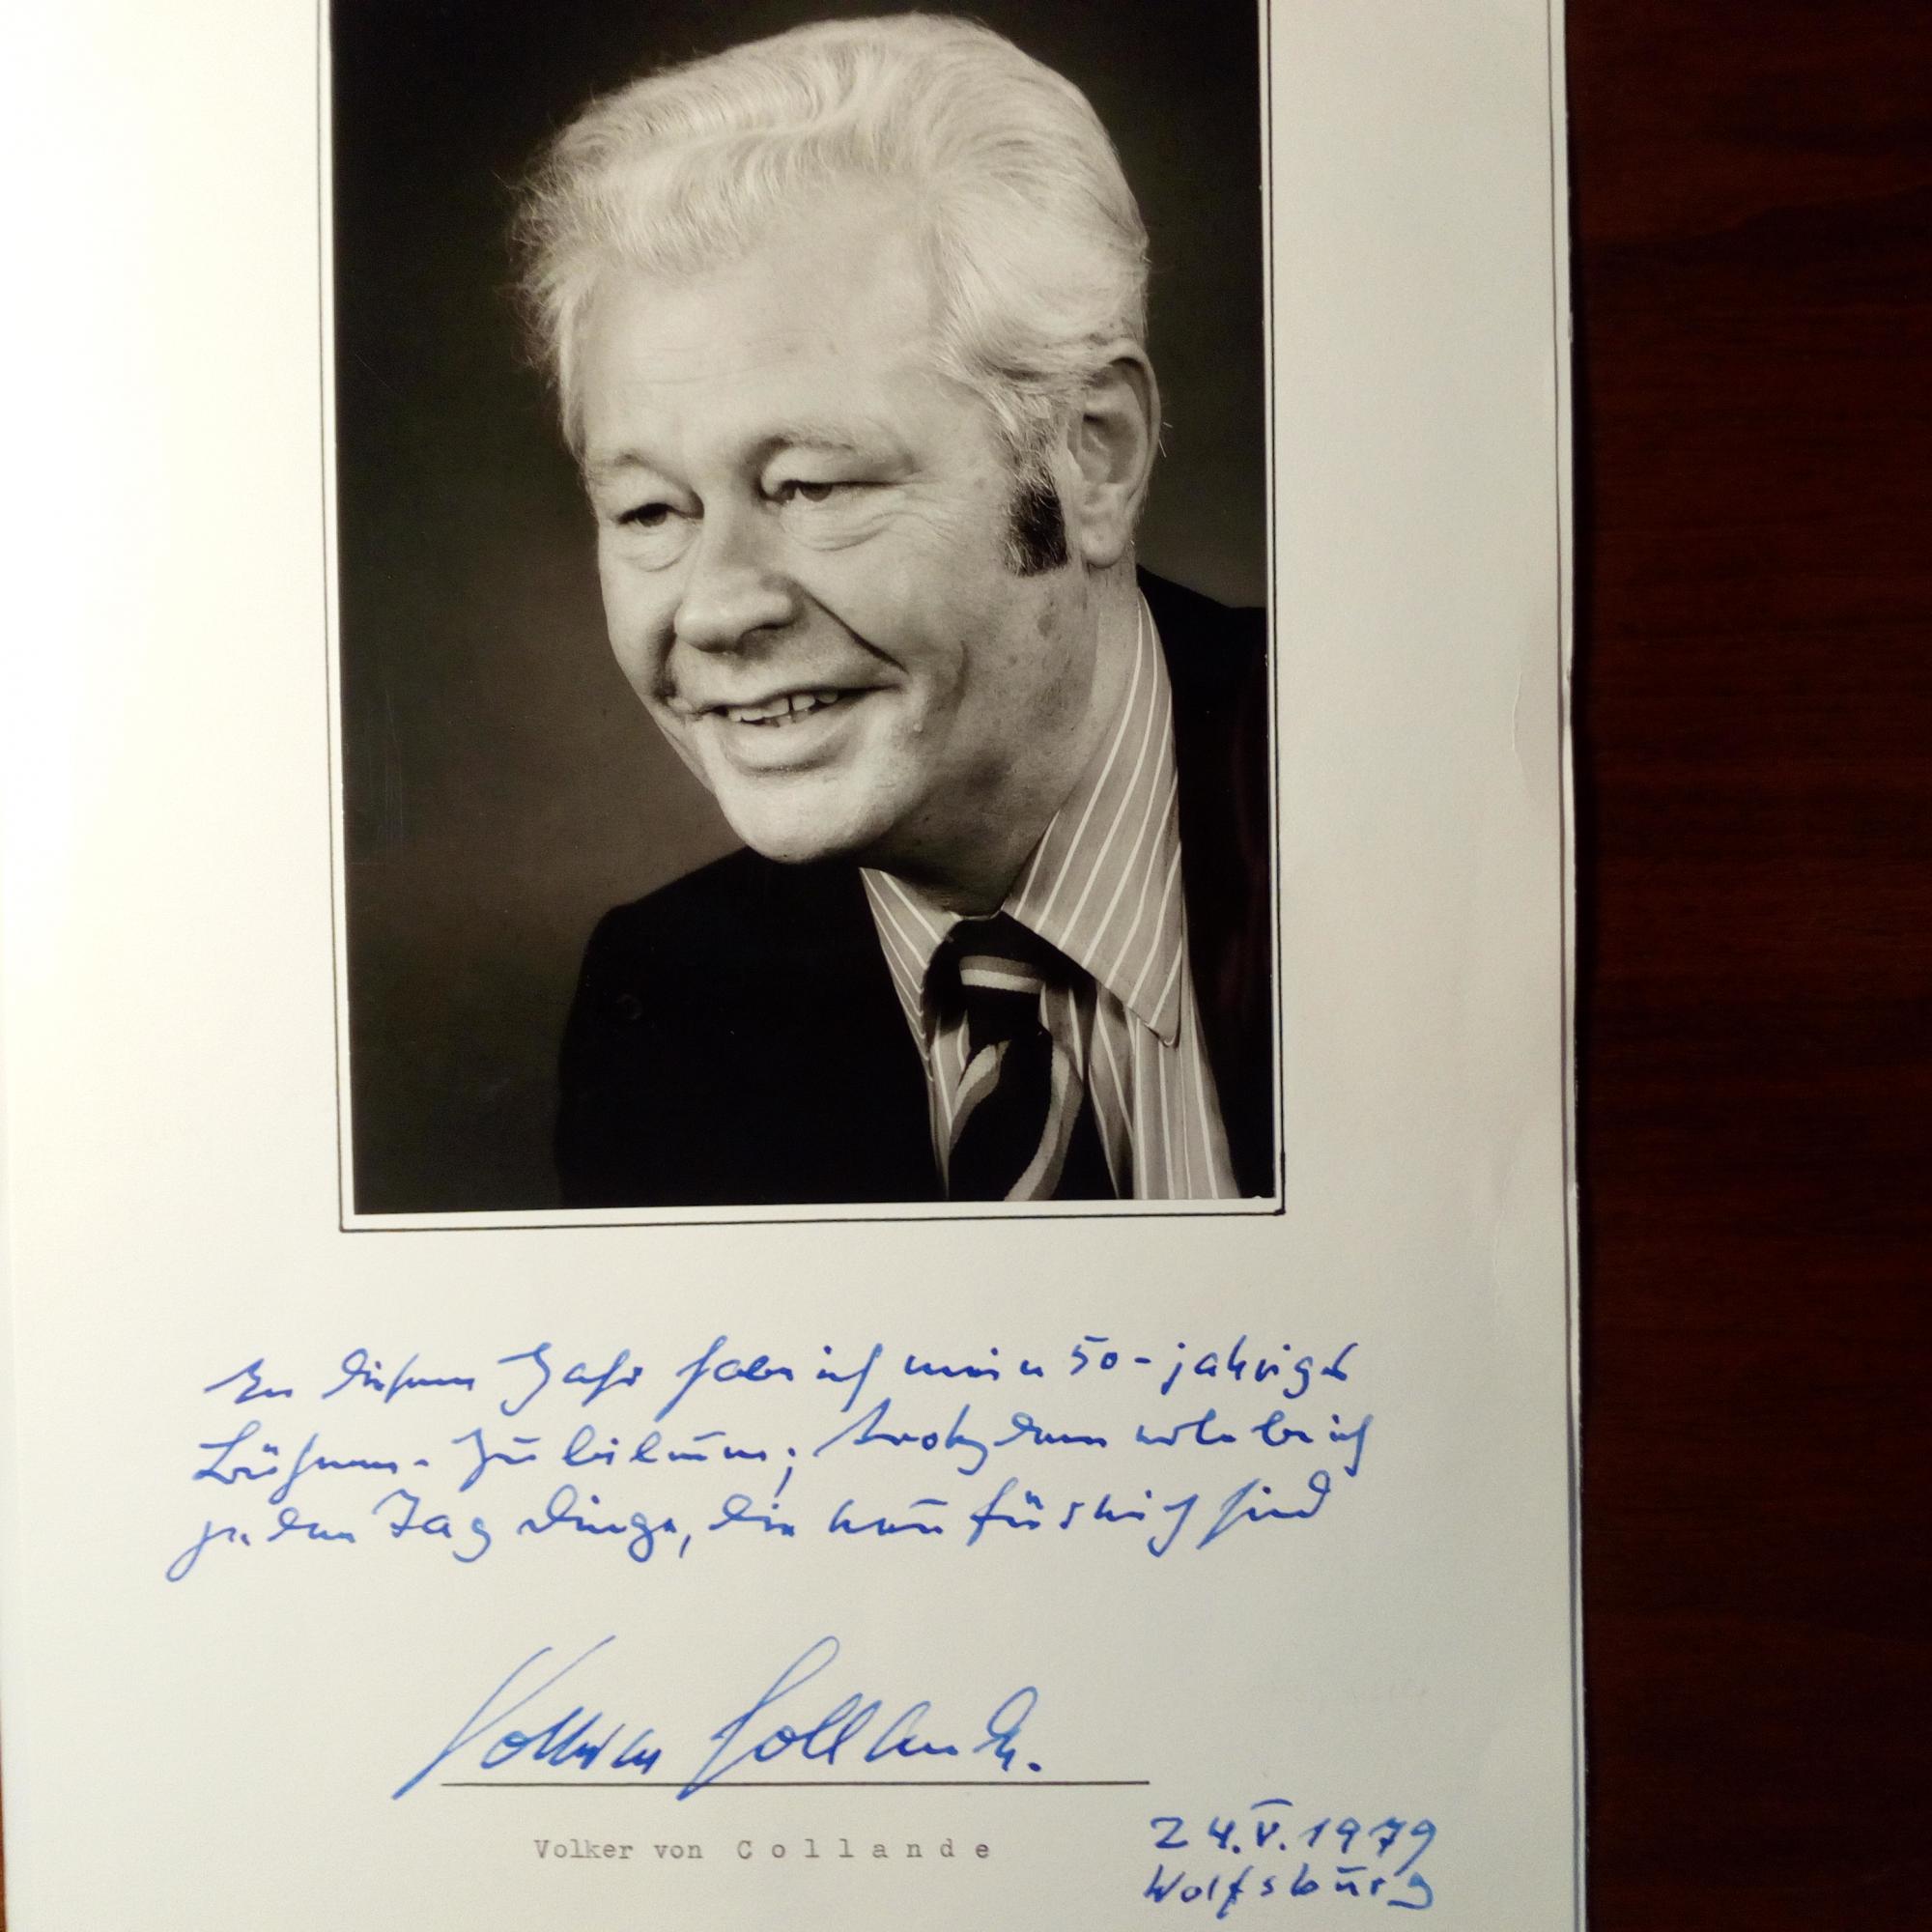 In diesem Jahr habe ich mein 50-jähriges
Bühnen-Jubiläum; trotzdem erlebe ich
jeden Tag Dinge, die neu für mich sind
Volker von Collande.
Volker von Collande
24.V.1979
Wolfsburg